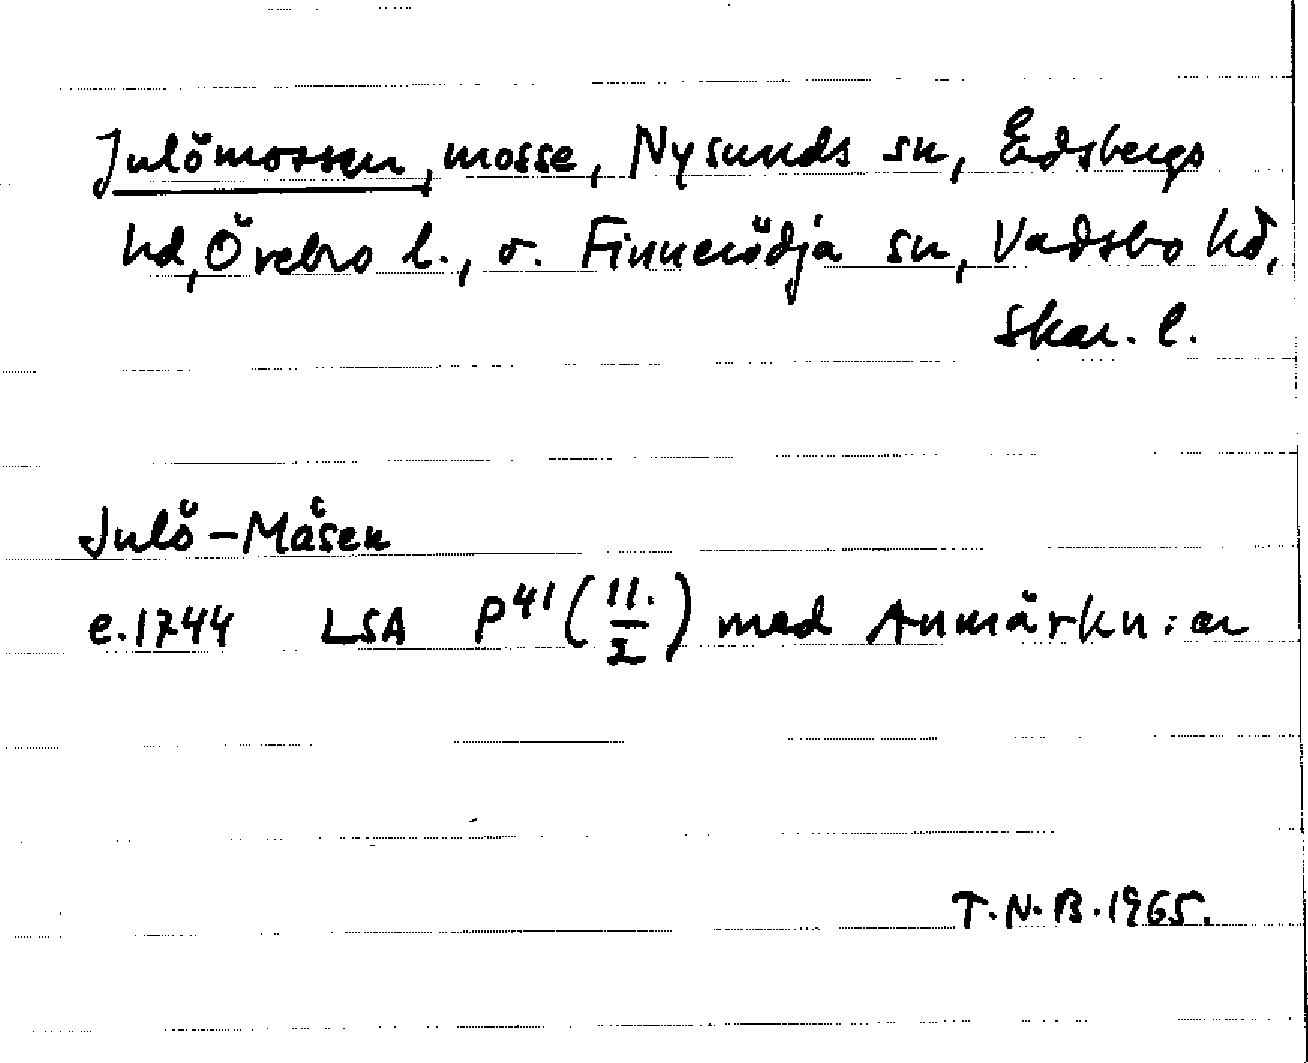 Julömossen, mosse, Nysunds sn, Edsbergs
hd, Örebro l., o. Finnerödja sn, Vadsbo hd,
Skar. l.
Julö-Måsen
e. 1744 LSA P41 (11./I) med Anmärkn:ar
T.N.B. 1965.